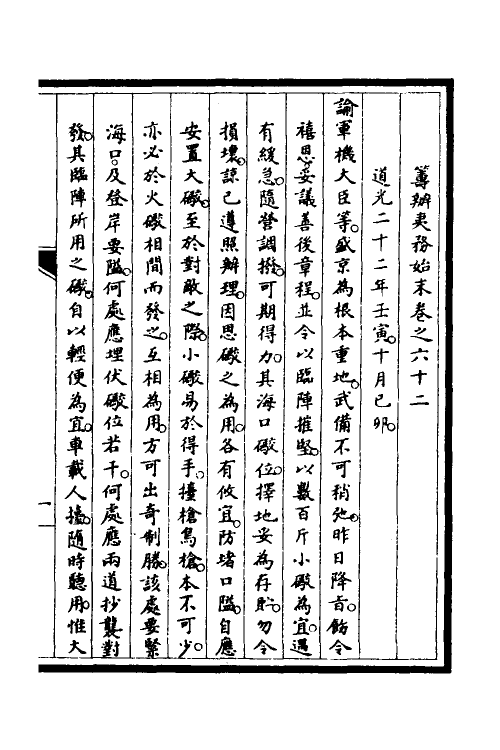 籌辦夷務始末卷之六十二
道光二十二年壬寅。十月己卯。
諭軍機大臣等。盛京為根本重地。武備不可稍弛。昨日降旨。飭令
禧恩。妥議善後章程。並令以臨陣摧堅。以數百斤小礮為宜。遇
有緩急。隨營調撥。可期得力。其海口礮位。擇地妥為存貯。勿令
損壞。諒已遵照辦理。因思礮之為用。各有攸宜。防堵口隘。自應
安置大礮。至於對敵之際。小礮易於得手。擡槍鳥槍。本不可少。
亦必於火礮相間而發之。互相為用。方可出奇制勝。該處要緊
海口。及登岸要隘。何處應埋伏礮位若干。何處應兩道抄襲對
發。其臨陣所用之礮。自以輕便為宜。車載人擡。隨時聽用。惟大
一